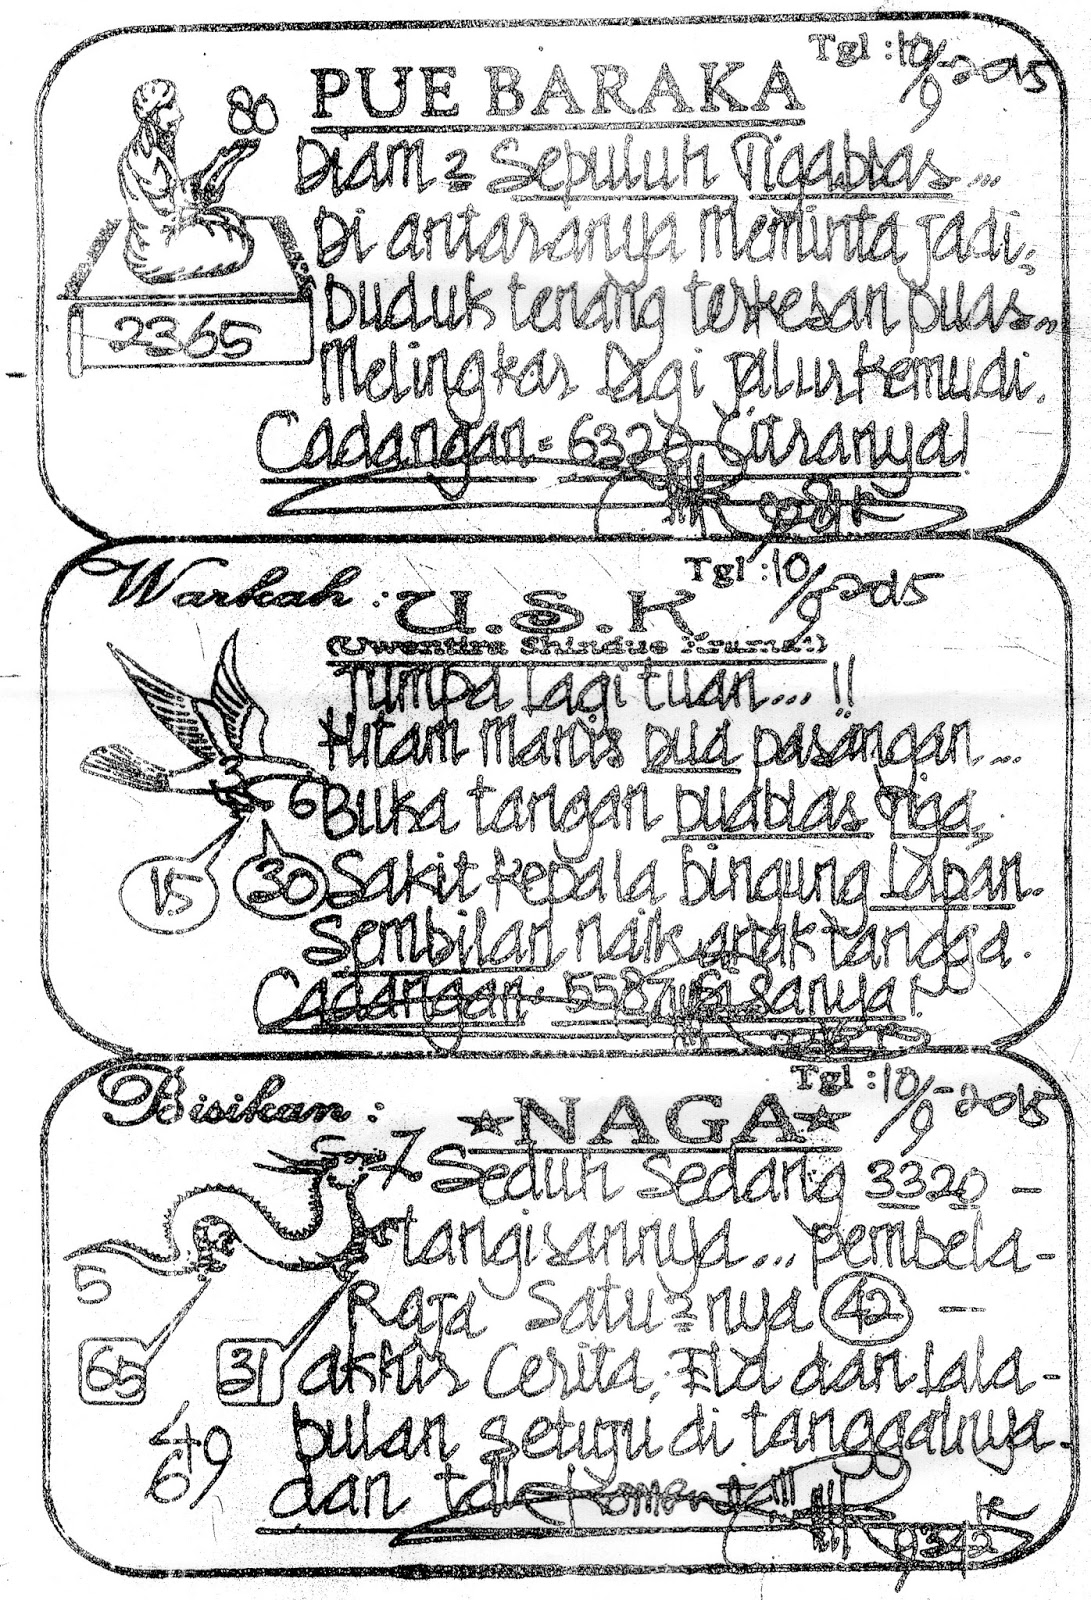 Tgl : 10/9-2015
PUE BARAKA
80
Diam 2 Sepuluh Tigablas...
Di antaranya Meminta jadi.
Duduk tenang terkesan puas...
2365
Melingkar Dagi jalur kemudi.
Cadangan = 6326 Citranya!
Warkah : U.S.K
Tgl : 10/9-2015
(Uwentira Shinduo
Tumpa Lagi tuan... !!
Hitam Manis Dua pasangan...
6 Buka tangan Duablas Tiga.
15 30 Sakit kepala bingung Lapan.
Sembilan naik anak tangga.
Cadangan : 5587 Sisanya!
Tgl : 10/9-2015
Bisikan : NAGA
7 Seduh Sedang 3320 -
tangisannya... pembela-
5
Raja Satu2nya 42 -
65 31 akhir Cerita, Ila dan Lala-
49 bulan setuju di tanggalnya-
6
dan tak Komentar!!!
9342